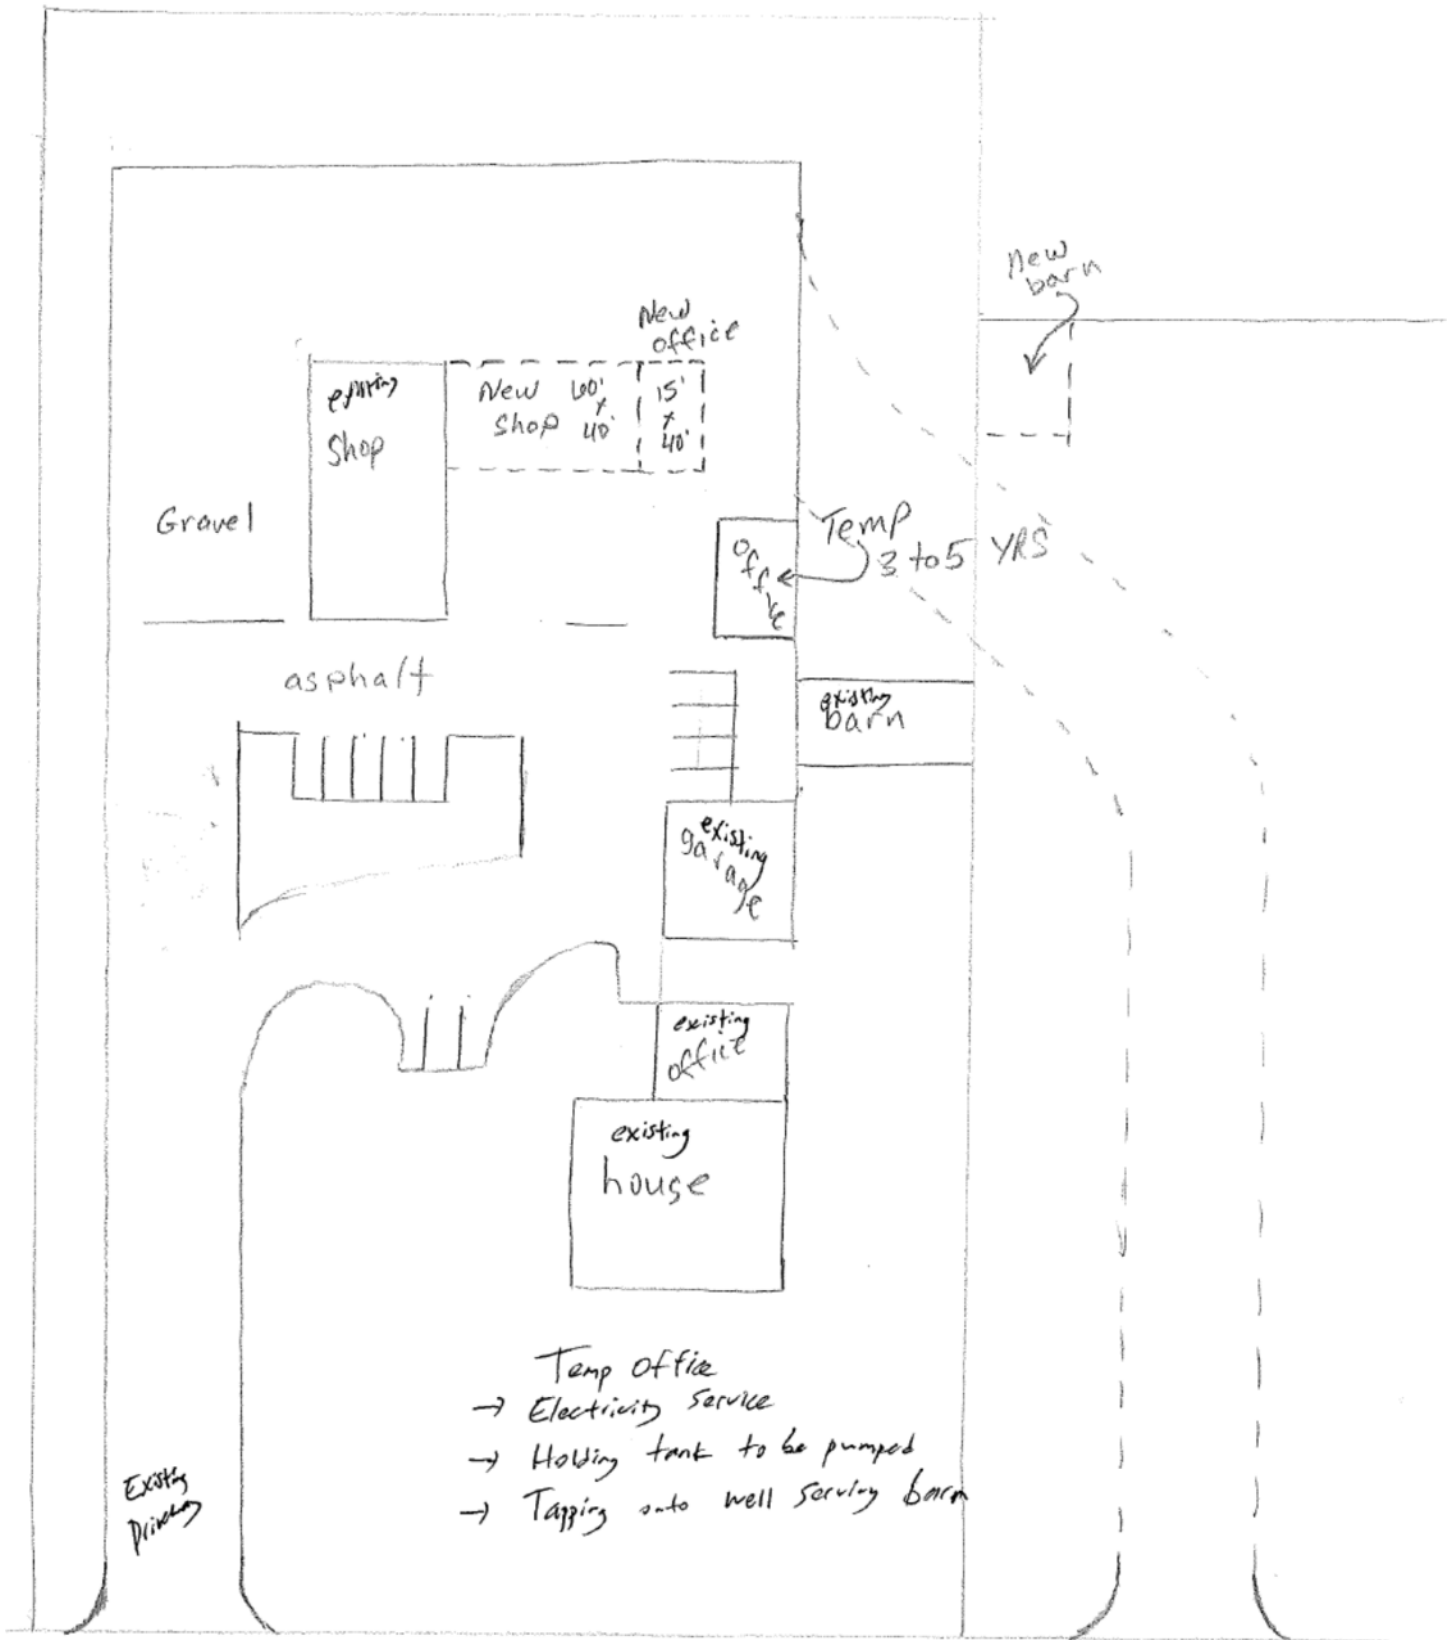 New
barn
New
office
existing
shop
New 60'
x
Shop 40'
15'
x
40'
Gravel
Temp
3 to 5 YRS
office
asphalt
existing
barn
existing
garage
existing
office
existing
house
Temp office
→ Electricity Service
→ Holding tank to be pumped
→ Tapping onto well serving barn
Existing
Driveway